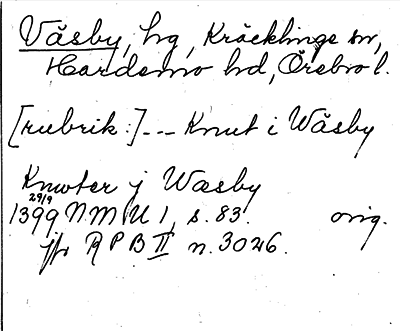 Väsby, hg, Kräcklinge sn,
Hardemo hd, Örebro l.
[rubrik:] --- Knut i Wäsby
Knwter j Wasby
29/9
1399 N M U 1, s. 83. orig.
jfr R P B II n. 3026.